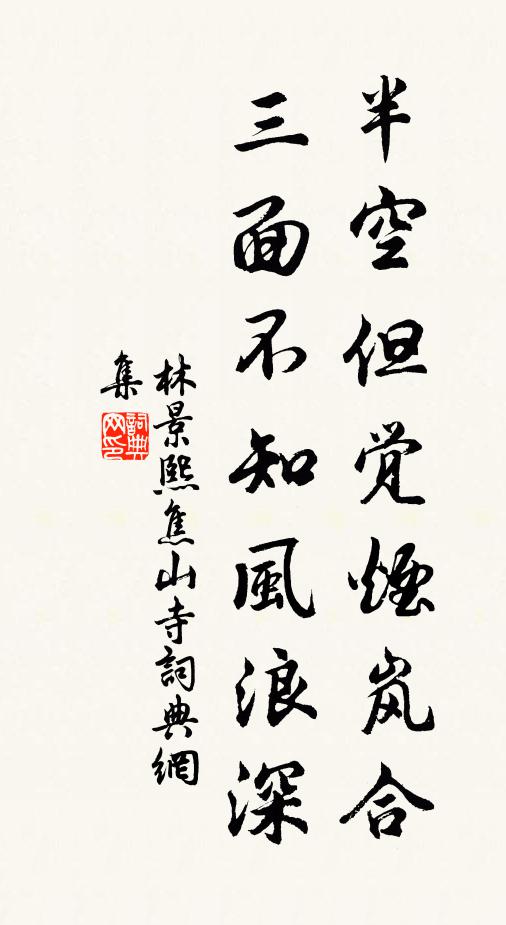 半空但觉煙岚合
三面不知風浪深
林景熙焦山寺詞典網
集
詞典
网印